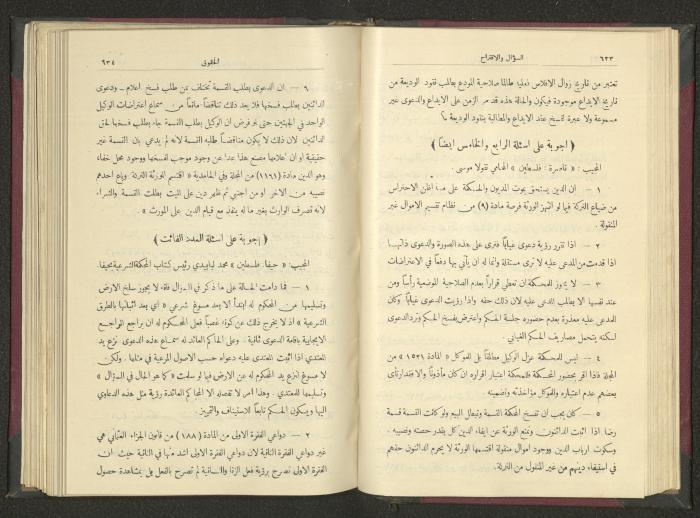 ٦٣٣ السؤال والاقتراح
تعتبر من تاريخ زوال الافلاس فعليا طالما صلاحية المودع بطلب نقود الوديعة من
تاريخ الايداع موجودة فيكون والحالة هذه قد مر الزمن على الايداع والدعوى غير
مسموعة ولا عبرة لفسخ عقد الايداع والمطالبة بنقود الوديعة ؟
﴿ اجوبة على اسئلة الرابع والخامس ايضاً ﴾
المجيب : « ناصرة : فلسطين » المحامي نقولا موسى .
١ — ان الدين يستحق بموت المديون والمحكمة على
من ضياع التركة فيها لو انتهز الورثة فرصة مادة (٩) من نظام تقسيم الاموال غير
المنقولة .
٢ — اذا تقرر رؤية دعوى غياباً فترى على هذه الصورة والدعوى ذاتها
اذا قدمت من المدعى عليه لا ترى مستقلة وانما له ان يأتي بها دفعاً في الاعتراضات
٣ — لا يجوز للمحكمة ان تعطي قراراً بعدم الصلاحية الموضعية رأساً ومن
عند نفسها الا بطلب المدعى عليه لان ذلك حقه واذا رؤيت الدعوى غياباً وكان
المدعى عليه معذرة بعدم حضوره جلسة الحكم واعترض بفسخ الحكم وترد الدعوى
لكنه يتحمل مصاريف الحكم الغيابي
٤ — ليس للمحكمة عزل الوكيل مطلقاً بل للموكل « المادة ١٥٢١ » من
المجلة فاذا اقر بحضور المحكمة فللمحكمة اعتبار اقراره ان كان مأذوناً والا فلدار تأى
بعضهم عدم اعتباره وللموكل مؤاخذته وتضمينه
٥ — كان يجب ان تفسخ المحكمة القسمة وتبطل البيع ولو كانت القسمة قسمة
رضا اذا اثبت الدائنون وتمنع الورثة عن ايفاء الدين كل بقدر حصته ونصيبه .
وسكوت ارباب الدين ووجود اموال منقولة اقتسمها الورثة لا يحرم الدائنون حقهم
في استيفاء دينهم من غير المنقول من التركة .
الحقوق ٦٣٤
٦ — ان الدعوى بطلب القسمة تختلف عن طلب فسخ اعلام ودعوى
الدائنين بطلب فسخها فلا يعد ذلك تناقضاً مانعاً من سماع اعتراضات الوكيل
الواحد في الجهتين حتى لو فرض ان الوكيل بطلب القسمة جاء بطلب فسخها لحق
الدائنين لان ذلك لا يكون مناقضاً طلبه القسمة لانه لم يدعي بان القسمة غير
حقيقية او ان اعلامها مصنع هذا عدا عن وجود موجب لفسخها ووجود محل خفاء
وهو الدين مادة (١١٦١) من المجلة وفي الحامدية « اقتسم الورثة التركة وباع احدهم
نصيبه من الآخر او من اجنبي ثم ظهر دين على الميت بطلت القسمة والشراء
لانه تصرف الوارث بغير ما له ينفذ مع قيام الدين على المورث » .
﴿ اجوبة على اسئلة العدد الفائت ﴾
المجيب : « حيفا : فلسطين » محمد لبابيدي رئيس كتاب المحكمة الشرعية بحيفا .
١ — فما دامت الحالة على ما ذكر في السؤال فانه لا يجوز سلخ الارض
وتسليمها من المحكوم له ابتداً الا بعد مسوغ شرعي « اي بعد اثباتها بالطرق
الشرعية » اذ لا يخرج ذلك عن كونه غصباً فعلى المحكوم له ان يراجع المراجع
الايجابية باقامة الدعوى ثانية . وعلى الحاكم العائد له سماع هذه الدعوى نزع يد
المعتدي اذا اثبت المعتدى عليه دعواه حسب الاصول المرعية في مثلها . ولكن
لا مسوغ لنزع يد المحكوم له عن الارض فيها لو سلمت « كما هو الحال في السؤال »
وتسليمها للمعتدي . وهذا امر لا تفصله الا المحاكم العائدة رؤية مثل هذه الدعاوي
اليها ويكون الحكم تابعاً للاستئناف والتمييز .
٢ — دواعي الفقرة الاولى من المادة (١٨٨) من قانون الجزاء العثماني هي
غير دواعي الفقرة الثانية لان دواعي الفقرة الاولى اشد منها في الثانية حيث ان
الفقرة الاولى تصرح برؤية فعل الزنا والثانية لم تصرح بالفعل بل بمشاهدة حصول